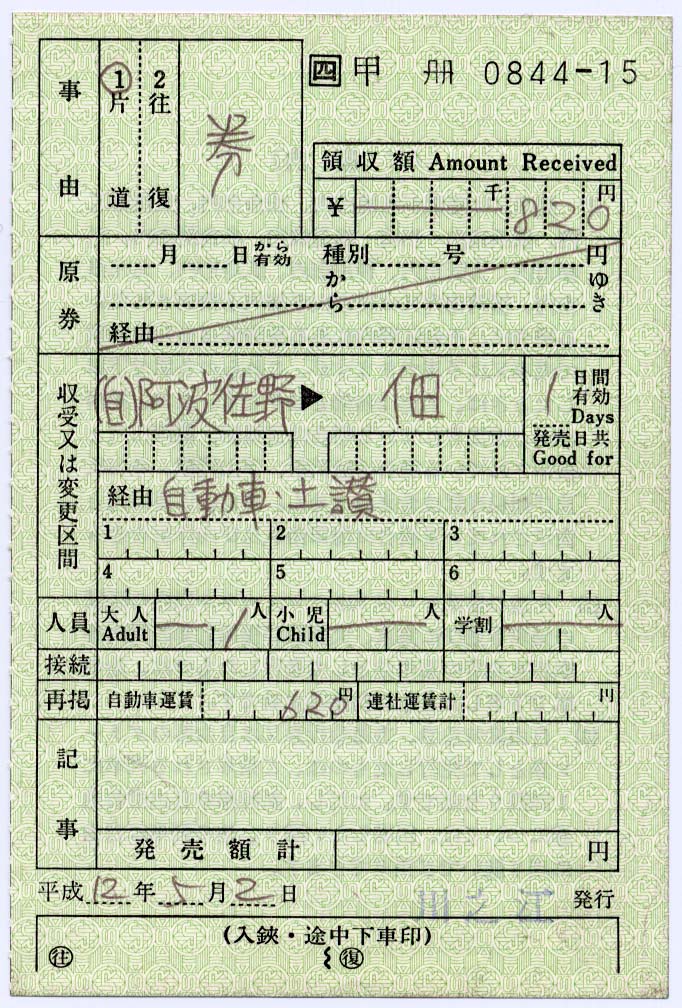 四 甲 冊 0844-15
事由
1 片道
2 往復
券
領収額 Amount Received
¥ 千 820 円
原券
月 日 から有効 種別 号 円
から ゆき
経由
収受又は変更区間
(自)阿波佐野 ▶ 佃
1 日間有効 Days
発売日共 Good for
経由 自動車・土讃
1 2 3
4 5 6
人員 大人 Adult 1 人 小児 Child 人 学割 人
接続
再掲 自動車運賃 620 円 連社運賃計 円
記事
発売額計 円
平成 12 年 5 月 2 日 川之江 発行
(入鋏・途中下車印)
往 復